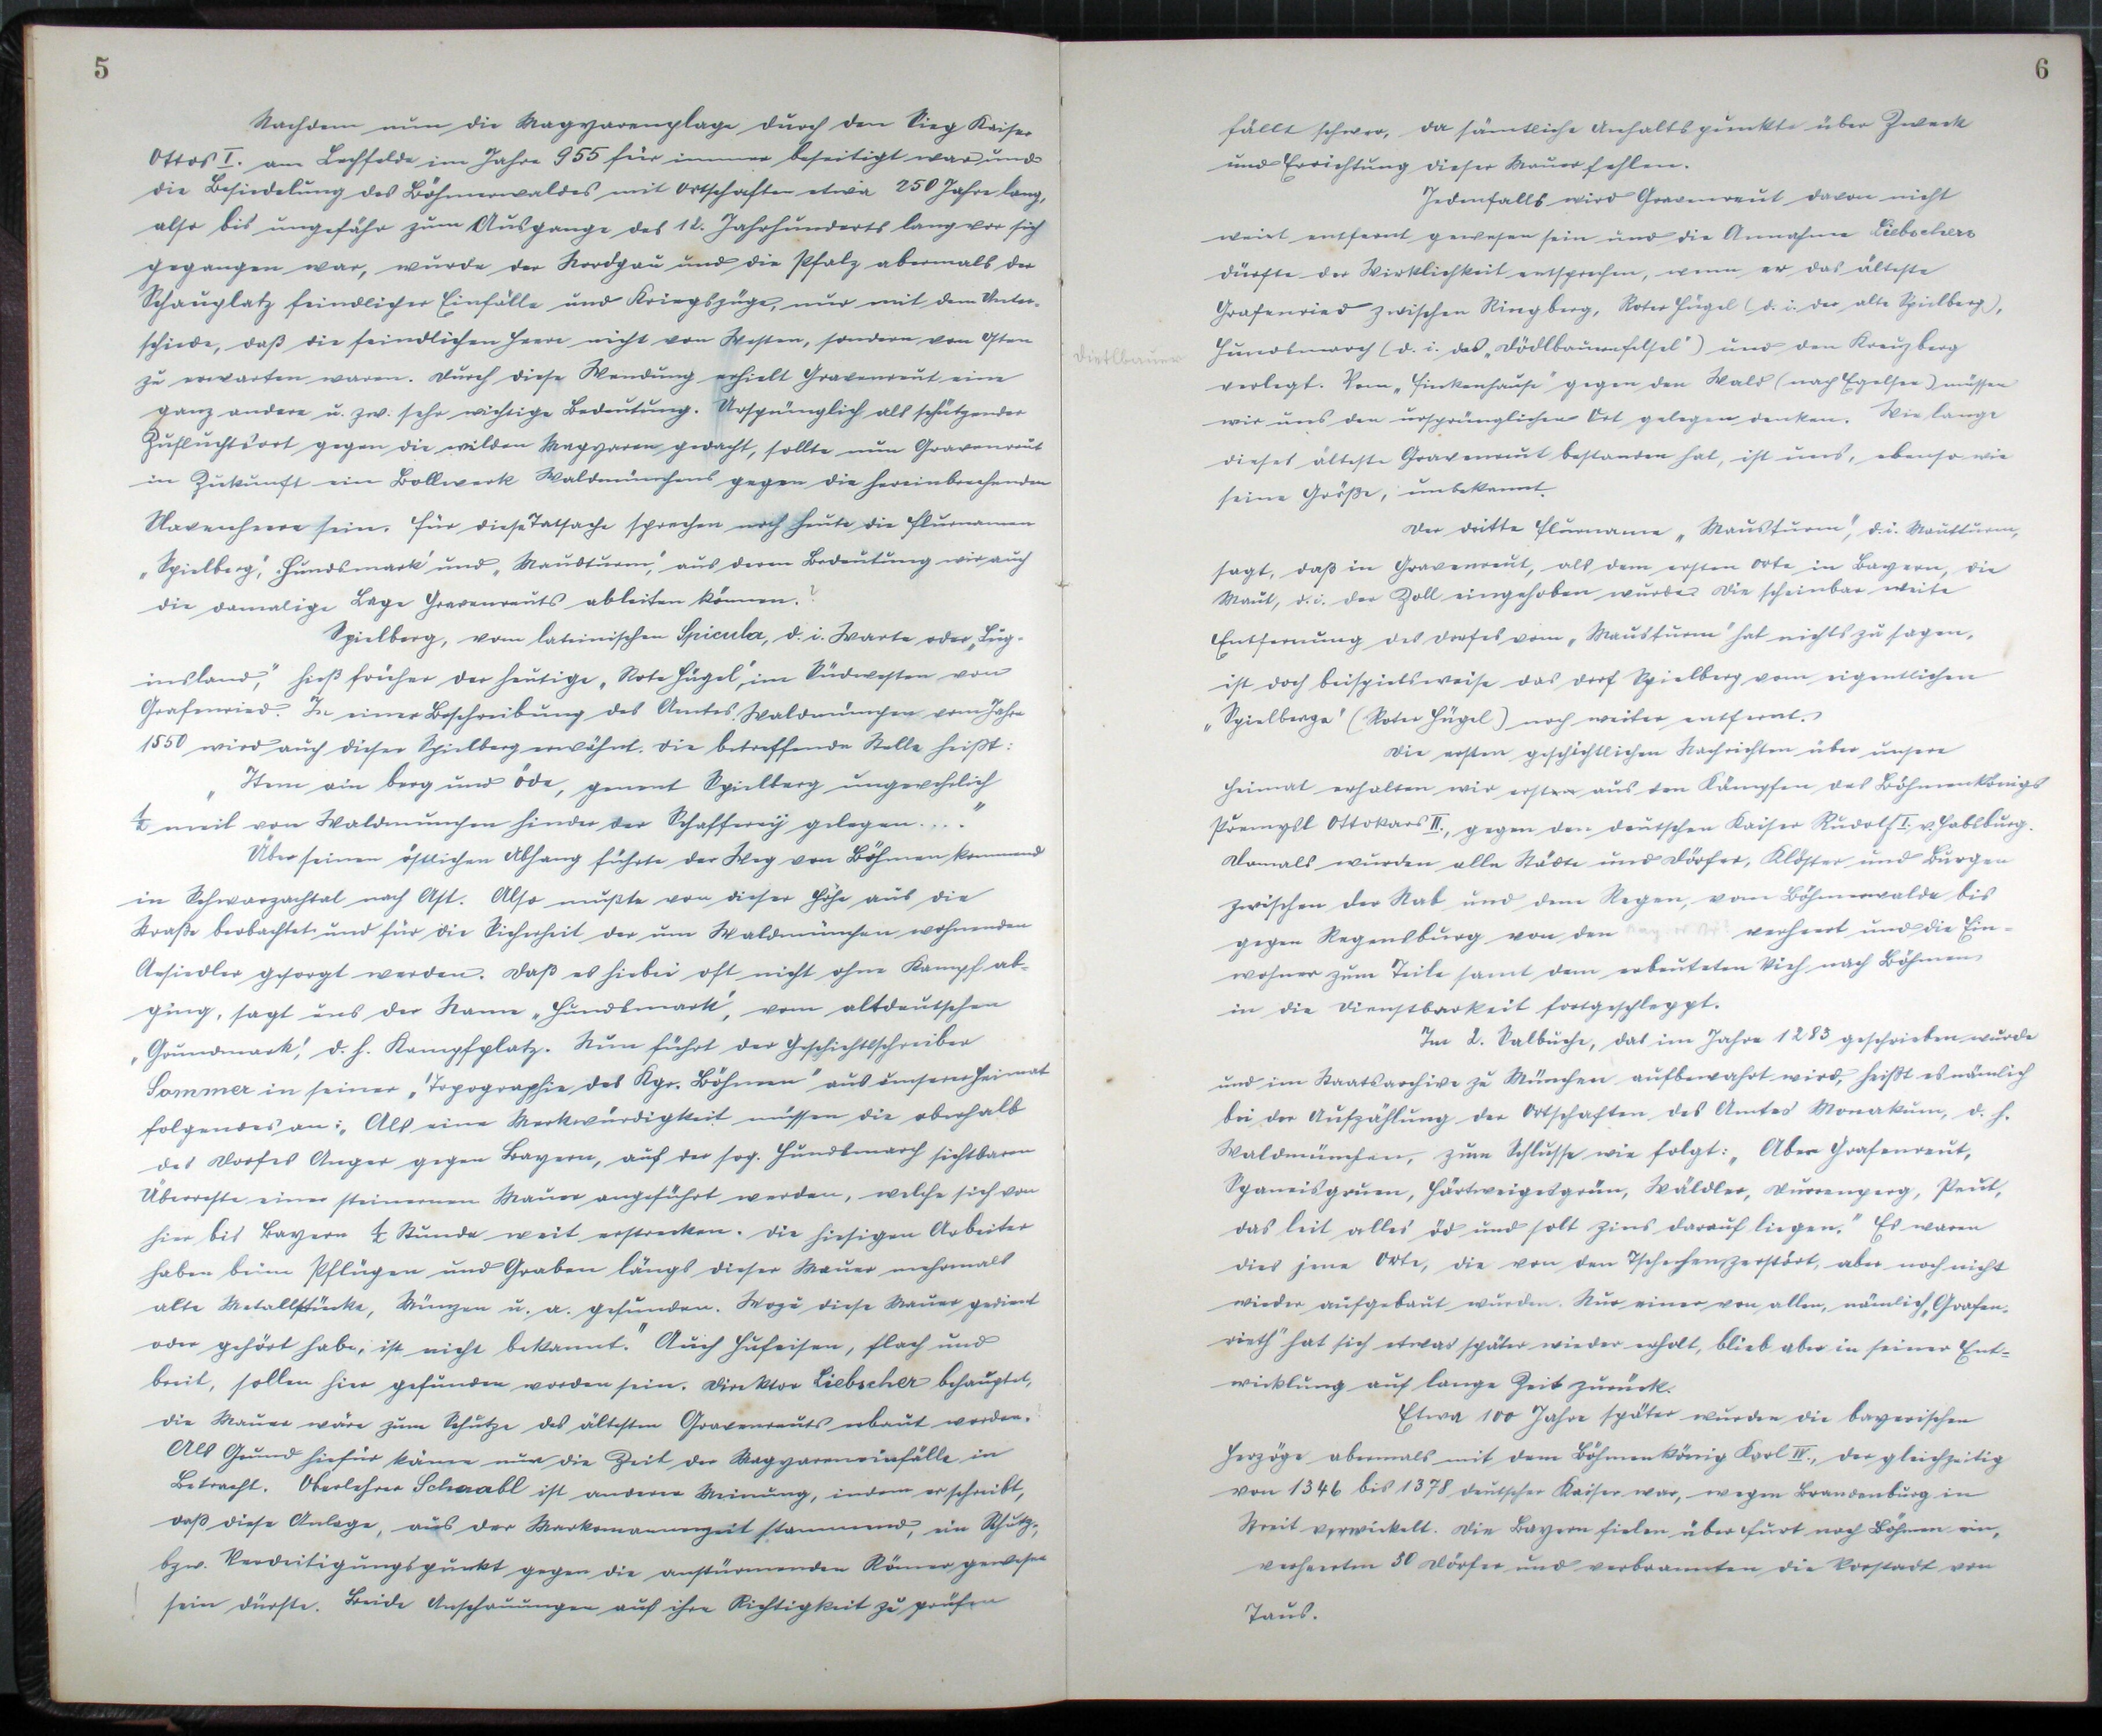 5
Nachdem nun die Magyarenplage durch den Sieg Kaiser
Ottos I. am Lechfelde im Jahre 955 für immer beseitigt war und
die Besiedelung des Böhmerwaldes mit Ortschaften etwa 250 Jahre lang,
also bis ungefähr zum Ausgange des 12. Jahrhunderts lang vor sich
gegangen war, wurde der Nordgau und die Pfalz abermals der
Schauplatz feindlicher Einfälle und Kriegszüge, nur mit dem Unter-
schiede, daß die feindlichen Heere nicht von Westen, sondern von Osten
zu erwarten waren. Durch diese Wendung erhielt Gravenreut eine
ganz andere u. zw. sehr wichtige Bedeutung. Ursprünglich als schützender
Zufluchtsort gegen die wilden Magyaren gedacht, sollte nun Gravenreut
in Zukunft ein Bollwerk Waldmünchens gegen die hereinbrechenden
Slavenheere sein. Für diese Tatsache sprechen noch heute die Flurnamen
„Spielberg", „Hundsmark" und „Maudturm", aus deren Bedeutung wir auch
die damalige Lage Gravenreuts ableiten können.?
Spielberg, vom lateinischen Spicula, d. i. Warte oder „Lug-
insland," hieß früher der heutige „Rote Hügel", im Südwesten von
Grafenried. In einer Beschreibung des Amtes Waldmünchen vom Jahre
1550 wird auch dieser Spielberg erwähnt. Die betreffende Stelle heißt:
„Item ain berg und öde, genent Spielberg ungevehrlich
½ meil von Waldmunchen hinder der Schafferey gelegen...."
Über seinen östlichen Abhang führte der Weg von Böhmen kommend
in Schwarzachtal nach Ast. Also mußte von dieser Höhe aus die
Straße beobachtet und für die Sicherheit der um Waldmünchen wohnenden
Ansiedler gesorgt werden. Daß es hiebei oft nicht ohne Kampf ab-
ging, sagt uns der Name „Hundsmark", vom altdeutschen
„Grundmark", d. h. Kampfplatz. Nun führt der Geschichtsschreiber
Sommer in seiner „Topographie des Kgr. Böhmen" aus unserer Heimat
folgendes an: „Als eine Merkwürdigkeit müssen die oberhalb
des Dorfes Anger gegen Bayern, auf der sog. Hundsmarch sichtbaren
Überreste einer steinernen Mauer angeführt werden, welche sich von
hier bis Bayern ½ Stunde weit erstrecken. Die hiesigen Arbeiter
haben beim Pflügen und Graben längs dieser Mauer mehrmals
alte Metallstücke, Münzen u. a. gefunden. Wozu diese Mauer gedient
oder gehört habe, ist nicht bekannt." Auch Hufeisen, flach und
breit, sollen hier gefunden worden sein. Direktor Liebscher behauptet,
die Mauer wäre zum Schutze des ältesten Gravenreuts erbaut worden.?
Als Grund hiefür käme nur die Zeit der Magyareneinfälle in
Betracht. Oberlehrer Schaabl ist anderer Meinung, indem er schreibt,
daß diese Anlage, aus der Markomannenzeit stammend, ein Schutz-,
bzw. Verdeitigungspunkt gegen die anstürmenden Römer gewesen
sein dürfte. Beide Anschauungen auf ihre Richtigkeit zu prüfen
6
fällt schwer, da sämtliche Anhaltspunkte über Zweck
und Errichtung dieser Mauer fehlen.
Jedenfalls wird Gravenreut davon nicht
weit entfernt gewesen sein und die Annahme Liebschers
dürfte der Wirklichkeit entsprechen, wenn er das älteste
Grafenried zwischen Ringberg, Roter Hügel (d. i. der alte Spielberg),
Dietlbauer
Hundsmarch (d. i. das „Dödlbauernfelsel") und den Kreuzberg
verlegt. Vom „Finkenhause" gegen den Wald (nach Egelsee) müssen
wir uns den ursprünglichen Ort gelegen denken. Wie lange
dieses älteste Gravenreut bestanden hat, ist uns, ebenso wie
seine Größe, unbekannt.
Der dritte Flurname „Mausturm", d. i. Mautturm,
sagt, daß in Gravenreut, als dem ersten Orte in Bayern, die
Maut, d. i. der Zoll eingehoben wurde. Die scheinbar weite
Entfernung des Dorfes vom „Mausturm" hat nichts zu sagen,
ist doch beispielsweise das Dorf Spielberg vom eigentlichen
„Spielberge" (Roter Hügel) noch weiter entfernt.
Die ersten geschichtlichen Nachrichten über unsere
Heimat erhalten wir erst aus den Kämpfen des Böhmenkönigs
Přemysl Ottokars II., gegen den deutschen Kaiser Rudolf I. v. Habsburg.
Damals wurden alle Städte und Dörfer, Klöster und Burgen
zwischen der Nab und dem Regen, vom Böhmerwalde bis
gegen Regensburg von den verheert und die Ein-
wohner zum Teile samt dem erbeuteten Vieh nach Böhmen
in die Dienstbarkeit fortgeschleppt.
Im 2. Salbuche, das im Jahre 1283 geschrieben wurde
und im Staatsarchive zu München aufbewahrt wird, heißt es nämlich
bei der Aufzählung der Ortschaften des Amtes Monakum, d. h.
Waldmünchen, zum Schlusse wie folgt: „Aber Grafenreut,
Spaneisgruen, Härtweigesgrün, Wäldler, Durrenperg, Peut,
das leit alles öd und solt zins darauf liegen." Es waren
dies jene Orte, die von den Tschechen zerstört, aber noch nicht
wieder aufgebaut wurden. Nur einer von allen, nämlich „Grafen-
rieth" hat sich etwas später wieder erholt, blieb aber in seiner Ent-
wicklung auf lange Zeit zurück.
Etwa 100 Jahre später wurden die bayerischen
Herzöge abermals mit dem Böhmenkönig Karl IV., der gleichzeitig
von 1346 bis 1378 deutscher Kaiser war, wegen Brandenburg in
Streit verwickelt. Die Bayern fielen über Furt nach Böhmen ein,
verheerten 30 Dörfer und verbrannten die Vorstadt von
Taus.